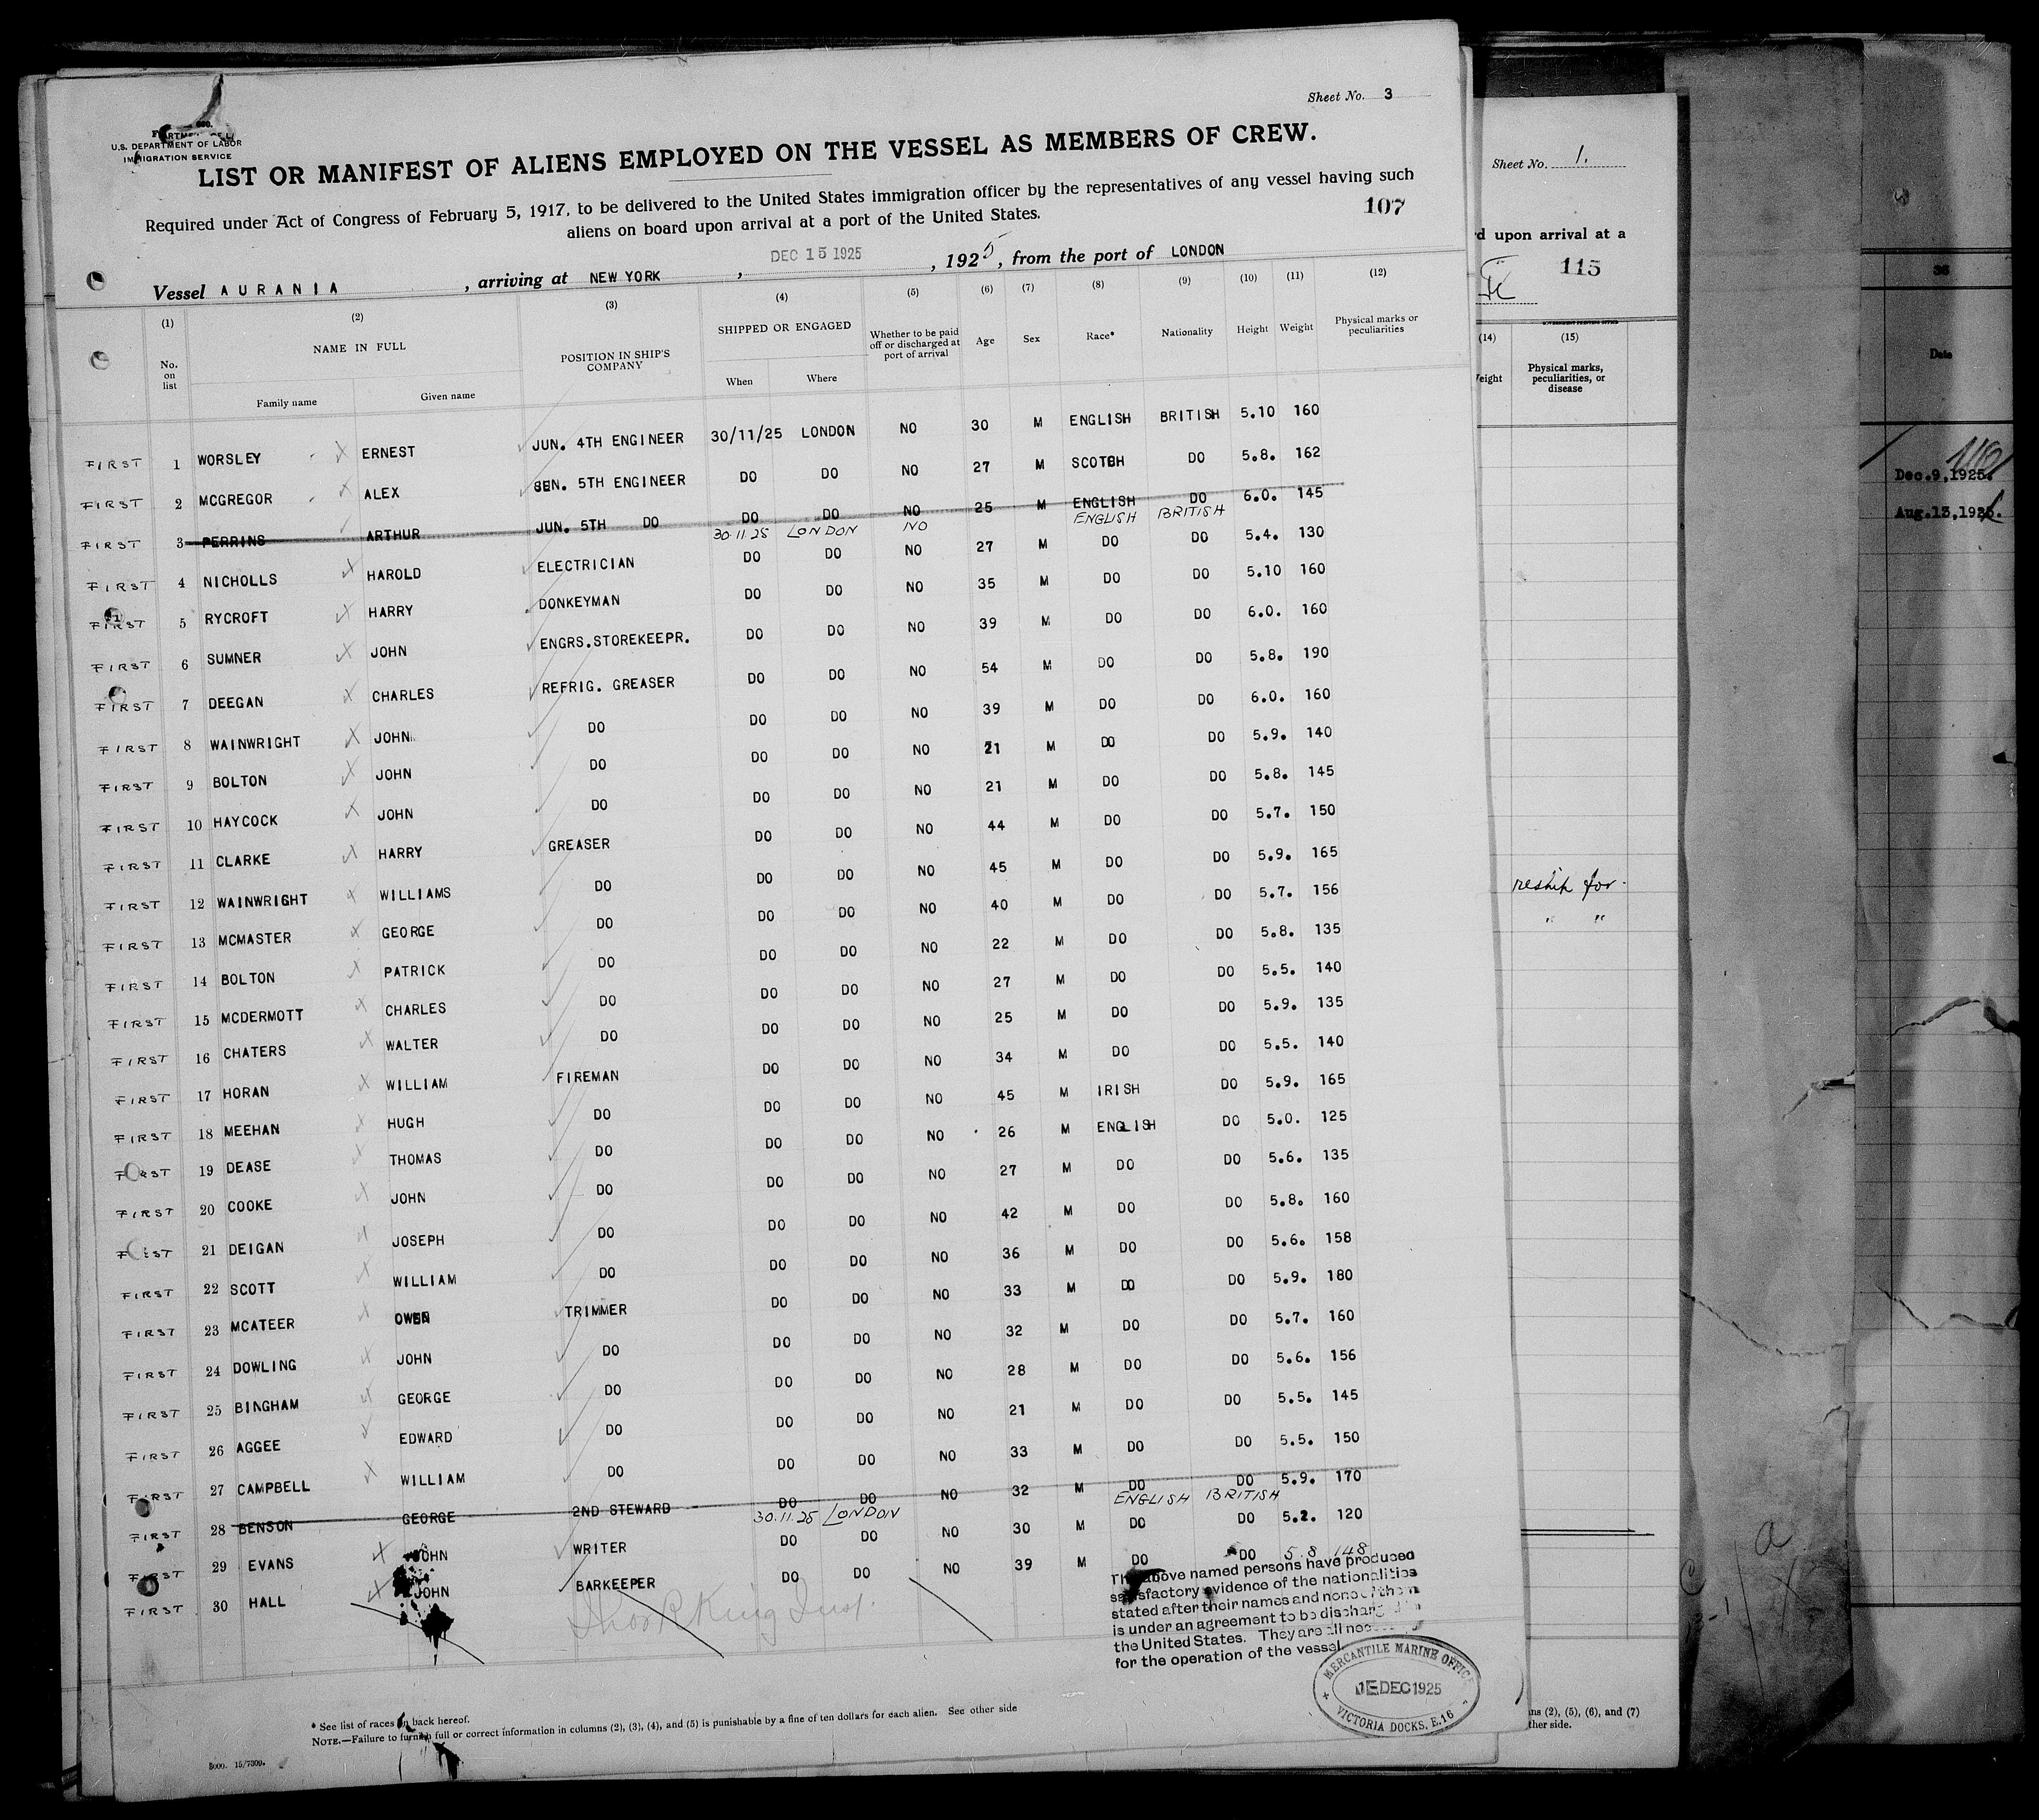 Sheet No. 3
U.S. DEPARTMENT OF LABOR
IMMIGRATION SERVICE
LIST OR MANIFEST OF ALIENS EMPLOYED ON THE VESSEL AS MEMBERS OF CREW.
Required under Act of Congress of February 5, 1917, to be delivered to the United States immigration officer by the representatives of any vessel having such
aliens on board upon arrival at a port of the United States.
107
Vessel AURANIA, arriving at NEW YORK, DEC 15 1925, 1925, from the port of LONDON
(1) (2) (3) (4) (5) (6) (7) (8) (9) (10) (11) (12)
No. on list NAME IN FULL POSITION IN SHIP'S COMPANY SHIPPED OR ENGAGED Whether to be paid off or discharged at port of arrival Age Sex Race* Nationality Height Weight Physical marks or peculiarities
Family name Given name When Where
FIRST 1 WORSLEY ERNEST JUN. 4TH ENGINEER 30/11/25 LONDON NO 30 M ENGLISH BRITISH 5.10 160
FIRST 2 MCGREGOR ALEX SEN. 5TH ENGINEER DO DO NO 27 M SCOTCH DO 5.8. 162
FIRST 3 PERRINS ARTHUR JUN. 5TH DO DO DO NO 25 M ENGLISH DO 6.0. 145
30.11.25 LONDON NO ENGLISH BRITISH
FIRST 4 NICHOLLS HAROLD ELECTRICIAN DO DO NO 27 M DO DO 5.4. 130
FIRST 5 RYCROFT HARRY DONKEYMAN DO DO NO 35 M DO DO 5.10 160
FIRST 6 SUMNER JOHN ENGRS.STOREKEEPR. DO DO NO 39 M DO DO 6.0. 160
FIRST 7 DEEGAN CHARLES REFRIG. GREASER DO DO NO 54 M DO DO 5.8. 190
FIRST 8 WAINWRIGHT JOHN DO DO DO NO 39 M DO DO 6.0. 160
FIRST 9 BOLTON JOHN DO DO DO NO 21 M DO DO 5.9. 140
FIRST 10 HAYCOCK JOHN DO DO DO NO 21 M DO DO 5.8. 145
FIRST 11 CLARKE HARRY GREASER DO DO NO 44 M DO DO 5.7. 150
FIRST 12 WAINWRIGHT WILLIAMS DO DO DO NO 45 M DO DO 5.9. 165
FIRST 13 MCMASTER GEORGE DO DO DO NO 40 M DO DO 5.7. 156
FIRST 14 BOLTON PATRICK DO DO DO NO 22 M DO DO 5.8. 135
FIRST 15 MCDERMOTT CHARLES DO DO DO NO 27 M DO DO 5.5. 140
FIRST 16 CHATERS WALTER DO DO DO NO 25 M DO DO 5.9. 135
FIRST 17 HORAN WILLIAM FIREMAN DO DO NO 34 M DO DO 5.5. 140
FIRST 18 MEEHAN HUGH DO DO DO NO 45 M IRISH DO 5.9. 165
FIRST 19 DEASE THOMAS DO DO DO NO 26 M ENGLISH DO 5.0. 125
FIRST 20 COOKE JOHN DO DO DO NO 27 M DO DO 5.6. 135
FIRST 21 DEIGAN JOSEPH DO DO DO NO 42 M DO DO 5.8. 160
FIRST 22 SCOTT WILLIAM DO DO DO NO 36 M DO DO 5.6. 158
FIRST 23 MCATEER OWEN TRIMMER DO DO NO 33 M DO DO 5.9. 180
FIRST 24 DOWLING JOHN DO DO DO NO 32 M DO DO 5.7. 160
FIRST 25 BINGHAM GEORGE DO DO DO NO 28 M DO DO 5.6. 156
FIRST 26 AGGEE EDWARD DO DO DO NO 21 M DO DO 5.5. 145
FIRST 27 CAMPBELL WILLIAM DO DO DO NO 33 M DO DO 5.5. 150
FIRST 28 BENSON GEORGE 2ND STEWARD DO DO NO 32 M DO DO 5.9. 170
30.11.25 LONDON ENGLISH BRITISH
FIRST 29 EVANS JOHN WRITER DO DO NO 30 M DO DO 5.2. 120
FIRST 30 HALL JOHN BARKEEPER DO DO NO 39 M DO DO 5.8 148
The above named persons have produced
satisfactory evidence of the nationalities
stated after their names and none of them
is under an agreement to be discharged in
the United States. They are all
for the operation of the vessel.
MERCANTILE MARINE OFFICE
DEC 1925
VICTORIA DOCKS, E.16
* See list of races on back hereof.
NOTE.—Failure to furnish full or correct information in columns (2), (3), (4), and (5) is punishable by a fine of ten dollars for each alien. See other side
15/7309.
Sheet No. 1.
upon arrival at a
115
(14) (15)
Physical marks, peculiarities, or disease
reship for
" "
(2), (5), (6), and (7)
other side.
36
Date
116
Dec. 9, 1925.
Aug. 13, 192